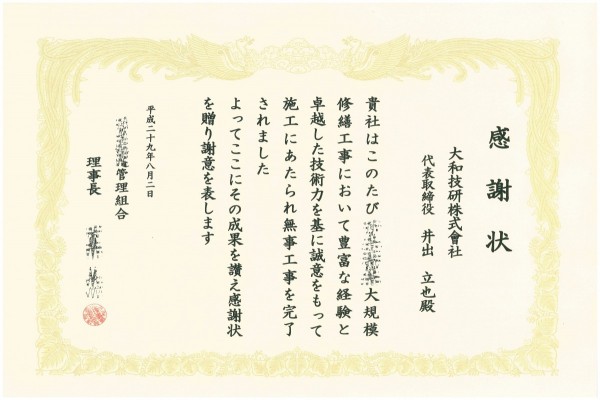 感謝状
大和技研株式會社
代表取締役 井出 立也殿
貴社はこのたび 大規模
修繕工事において豊富な経験と
卓越した技術力を基に誠意をもって
施工にあたられ無事工事を完了
されました
よってここにその成果を讃え感謝状
を贈り謝意を表します
平成二十九年八月二日
管理組合
理事長